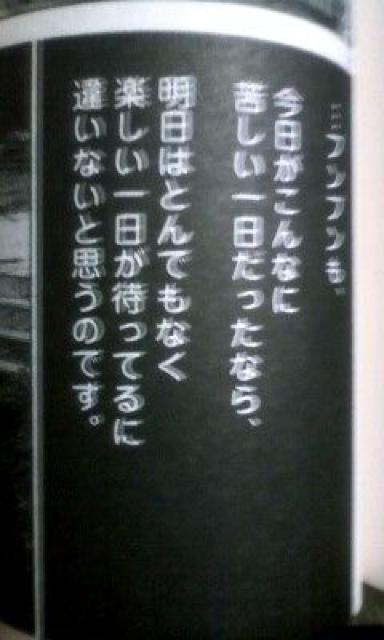 ……フンフンも、
今日がこんなに
苦しい一日だったなら、
明日はとんでもなく
楽しい一日が待ってるに
違いないと思うのです。